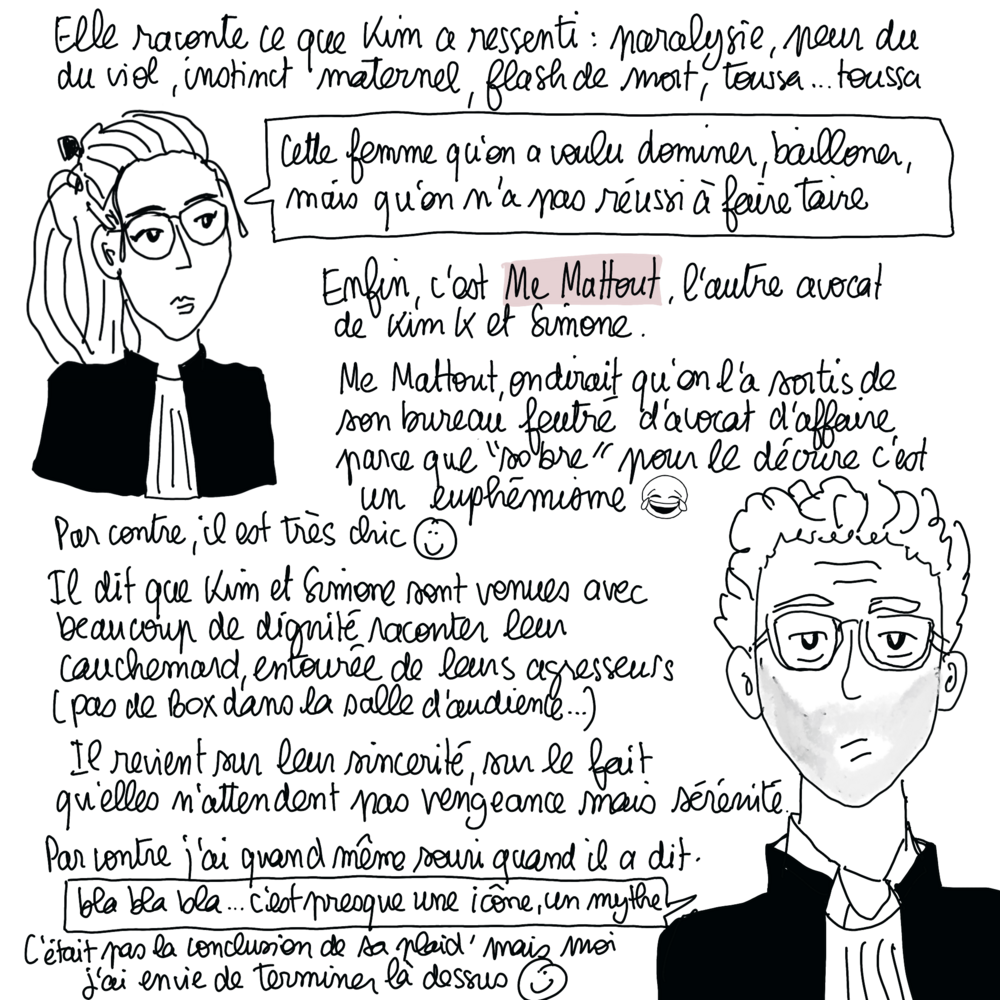 Elle raconte ce que Kim a ressenti : paralysie, peur du
du viol, instinct maternel, flash de mort, toussa... toussa
Cette femme qu'on a voulu dominer, bailloner,
mais qu'on n'a pas réussi à faire taire
Enfin, c'est Me Mattout, l'autre avocat
de Kim K et Simone.
Me Mattout, on dirait qu'on l'a sortis de
son bureau feutré d'avocat d'affaire
parce que "sobre" pour le décrire c'est
un euphémisme
Par contre, il est très chic
Il dit que Kim et Simone sont venues avec
beaucoup de dignité raconter leur
cauchemard, entourée de leurs agresseurs
(pas de Box dans la salle d'audience...)
Il revient sur leur sincerité, sur le fait
qu'elles n'attendent pas vengeance mais sérénité.
Par contre j'ai quand même souri quand il a dit.
bla bla bla... c'est presque une icône, un mythe
C'était pas la conclusion de sa plaid' mais moi
j'ai envie de terminer là dessus